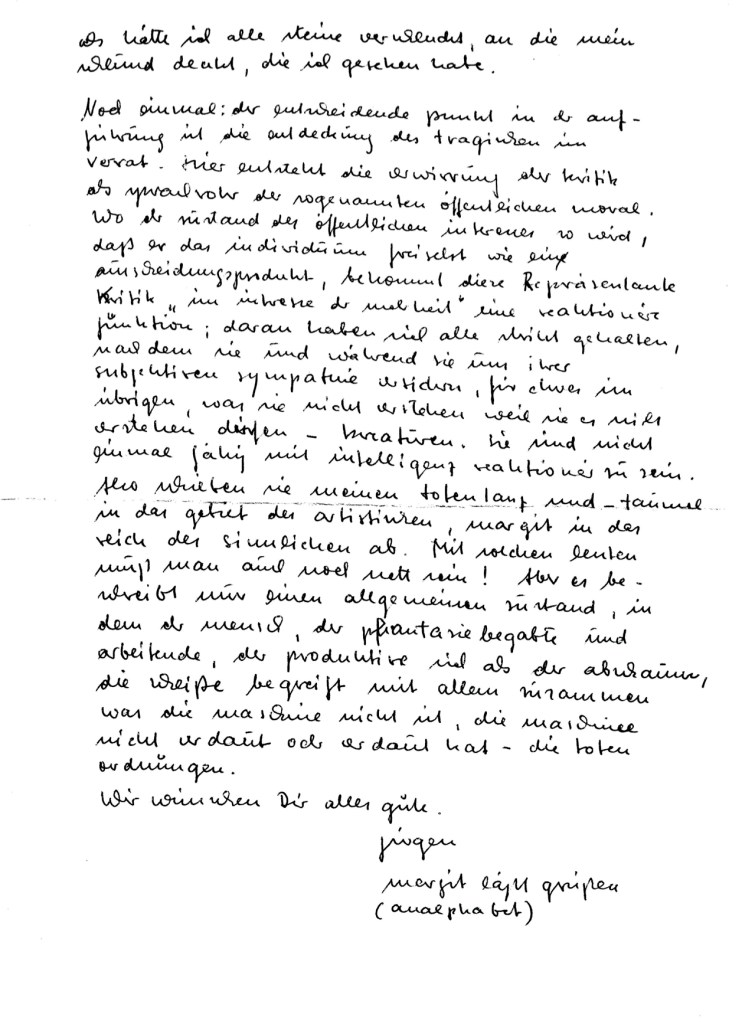 als hätte ich alle steine verschluckt, an die mein
schlund denkt, die ich gesehen habe.
Noch einmal: der entscheidende punkt in der auf-
führung ist die entdeckung des tragischen im
verrat. Hier entsteht die verwirrung der kritik
als sprachrohr der sogenannten öffentlichen moral.
Wo der zustand des öffentlichen interesses so wird,
daß er das individuum freisetzt wie ein
ausscheidungsprodukt, bekommt diese Repräsentante
Kritik „im interesse der mehrheit" eine reaktionäre
funktion; daran haben sich alle strikt gehalten,
nachdem sie und während sie uns ihrer
subjektiven sympathie versichern, für etwas im
übrigen, was sie nicht verstehen weil sie es nicht
verstehen dürfen – kreaturen. Sie sind nicht
einmal fähig mit intelligenz reaktionär zu sein.
Also schieben sie meinen totentanz und -taumel
in das gebiet des artistischen, margit in das
reich des sinnlichen ab. Mit solchen leuten
muß man auch noch nett sein! Aber es be-
schreibt nur einen allgemeinen zustand, in
dem der mensch, der phantasiebegabte und
arbeitende, der produktive sich als der abschaum,
die scheiße begreift mit allem zusammen
was die maschine nicht ist, die maschine
nicht verdaut oder verdaut hat – die toten
ordnungen.
Wir wünschen Dir alles gute.
jürgen
margit läßt grüßen
(analphabet)